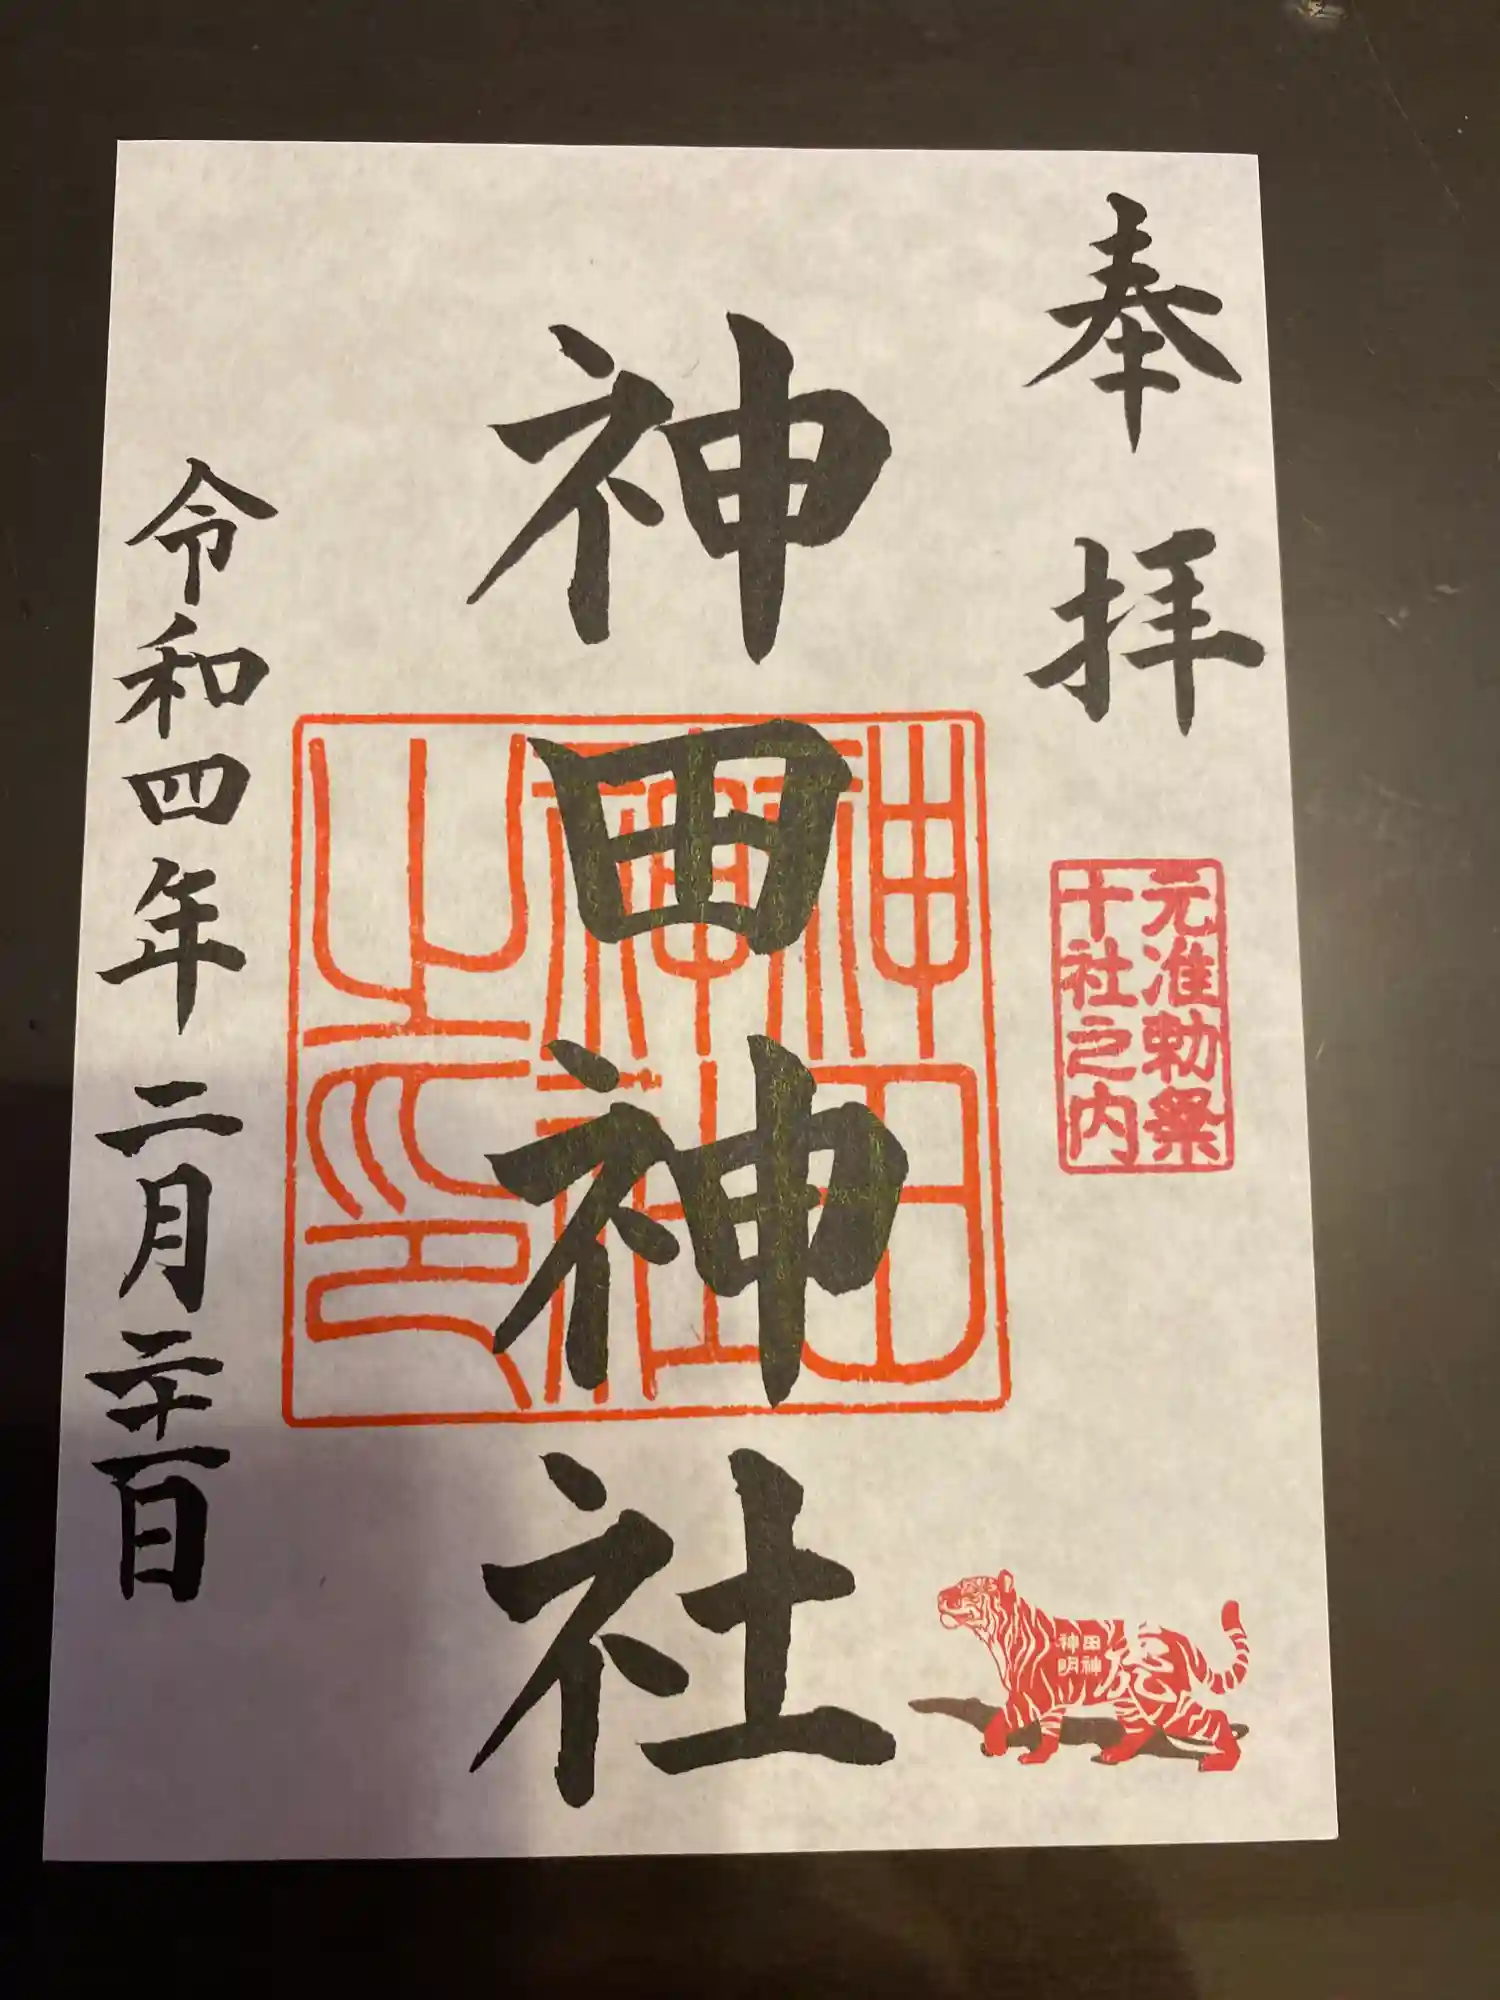 奉拝
元准勅祭
十社之内
神田神社
神田神社之印
令和四年二月二十一日
田神
神明
虎